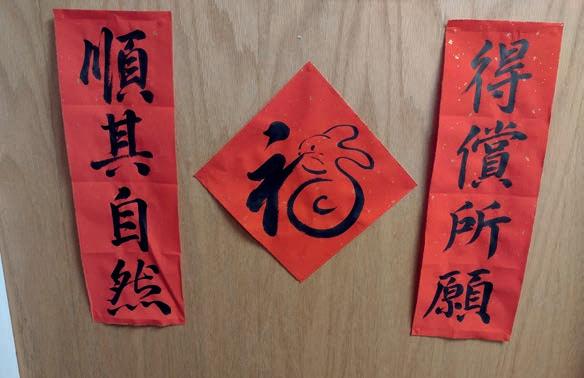 得償所願
福
順其自然